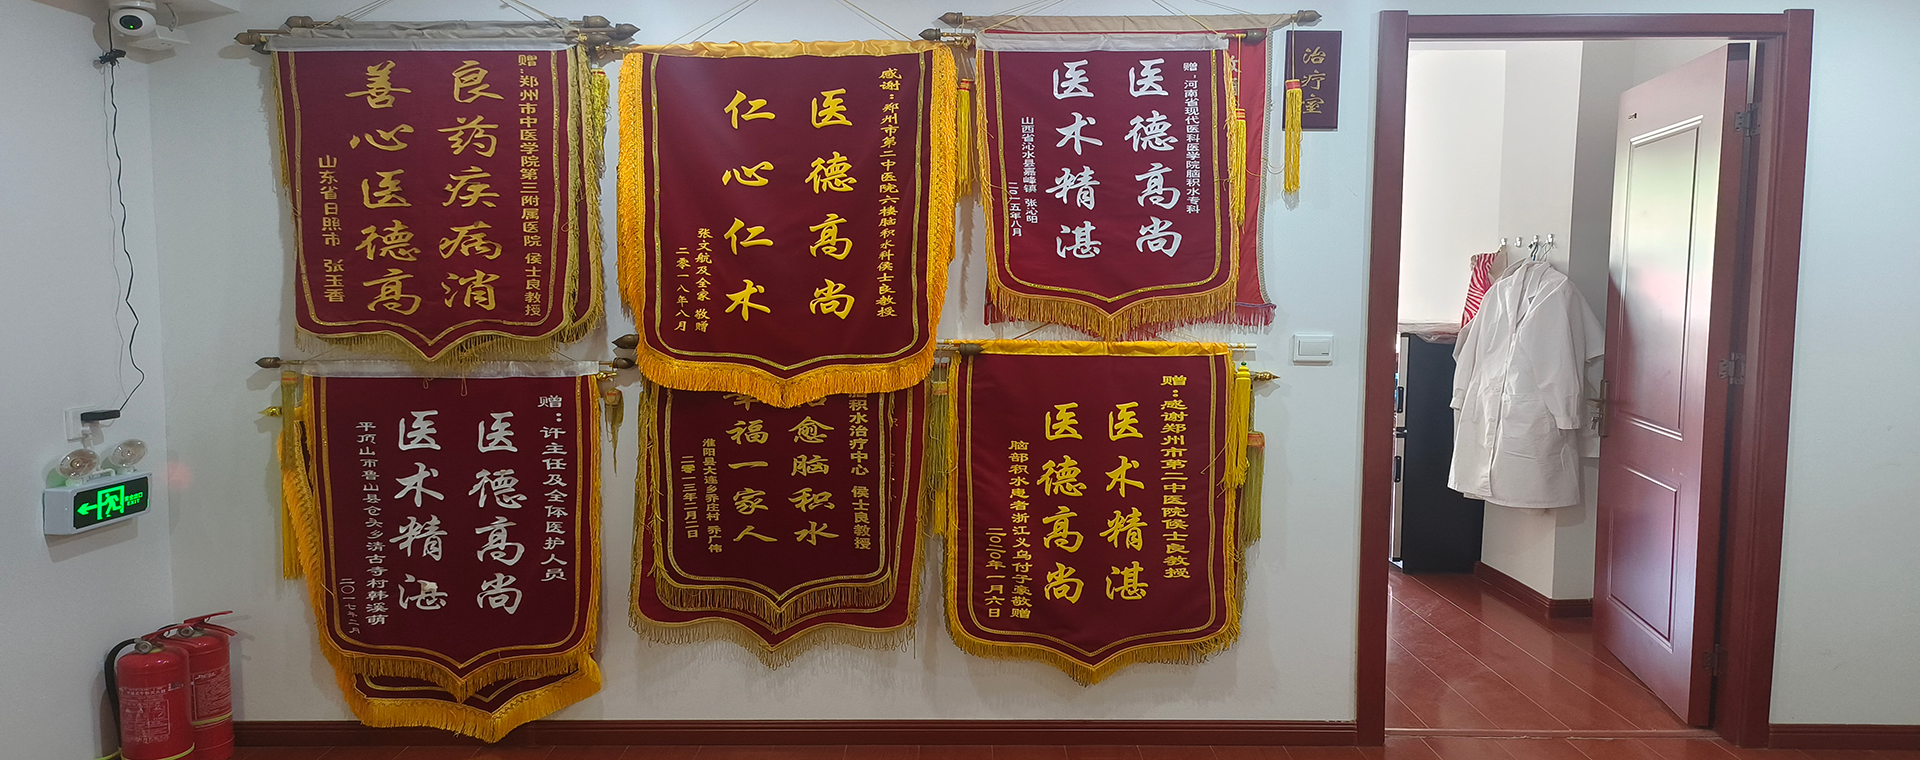 赠:郑州市中医学院第三附属医院 侯士良教授
良药疾病消
善心医德高
山东省日照市 张玉香
感谢:郑州市第二中医院六楼脑积水科侯士良教授
医德高尚
仁心仁术
张文航及全家 敬赠
二零一八年八月
赠:河南省现代医科医学院脑积水专科
医德高尚
医术精湛
山西省沁水县嘉峰镇 张沁阳
二〇一五年八月
治疗室
赠:许主任及全体医护人员
医德高尚
医术精湛
平顶山市鲁山县仓头乡清古寺村韩溪萌
二〇一七年二月
脑积水治疗中心 侯士良教授
愈脑积水
幸福一家人
淮阳县大连乡乔庄村 乔广伟
二零一三年二月二日
赠:感谢郑州市第二中医院侯士良教授
医术精湛
医德高尚
脑部积水患者浙江义乌付子豪敬赠
二〇二〇年一月六日
安全出口
EXIT